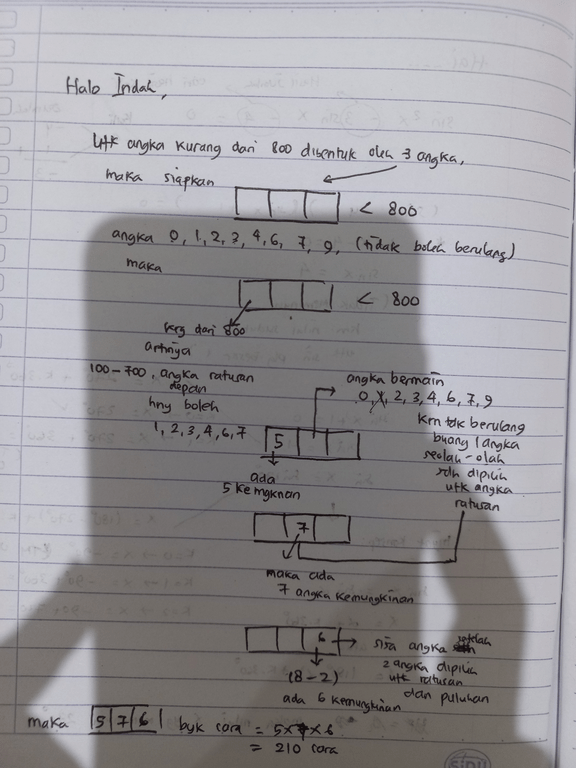 Halo Indah,
Utk angka kurang dari 800 dibentuk oleh 3 angka,
maka siapkan
< 800
angka 0, 1, 2, 3, 4, 6, 7, 9, (tidak boleh berulang)
maka
< 800
krg dari 800
artinya
100-700, angka ratusan
depan
hny boleh
1, 2, 3, 4, 6, 7
angka bermain
0, 1, 2, 3, 4, 6, 7, 9
krn tdk berulang
buang 1 angka
seolah-olah
sdh dipilih
utk angka
ratusan
5
ada
5 kemgknan
7
maka ada
7 angka kemungkinan
6
sisa angka setelah
2 angka dipilih
utk ratusan
dan puluhan
(8-2)
ada 6 kemungkinan
maka 5 7 6 byk cara = 5 x 7 x 6
= 210 cara
SIDU